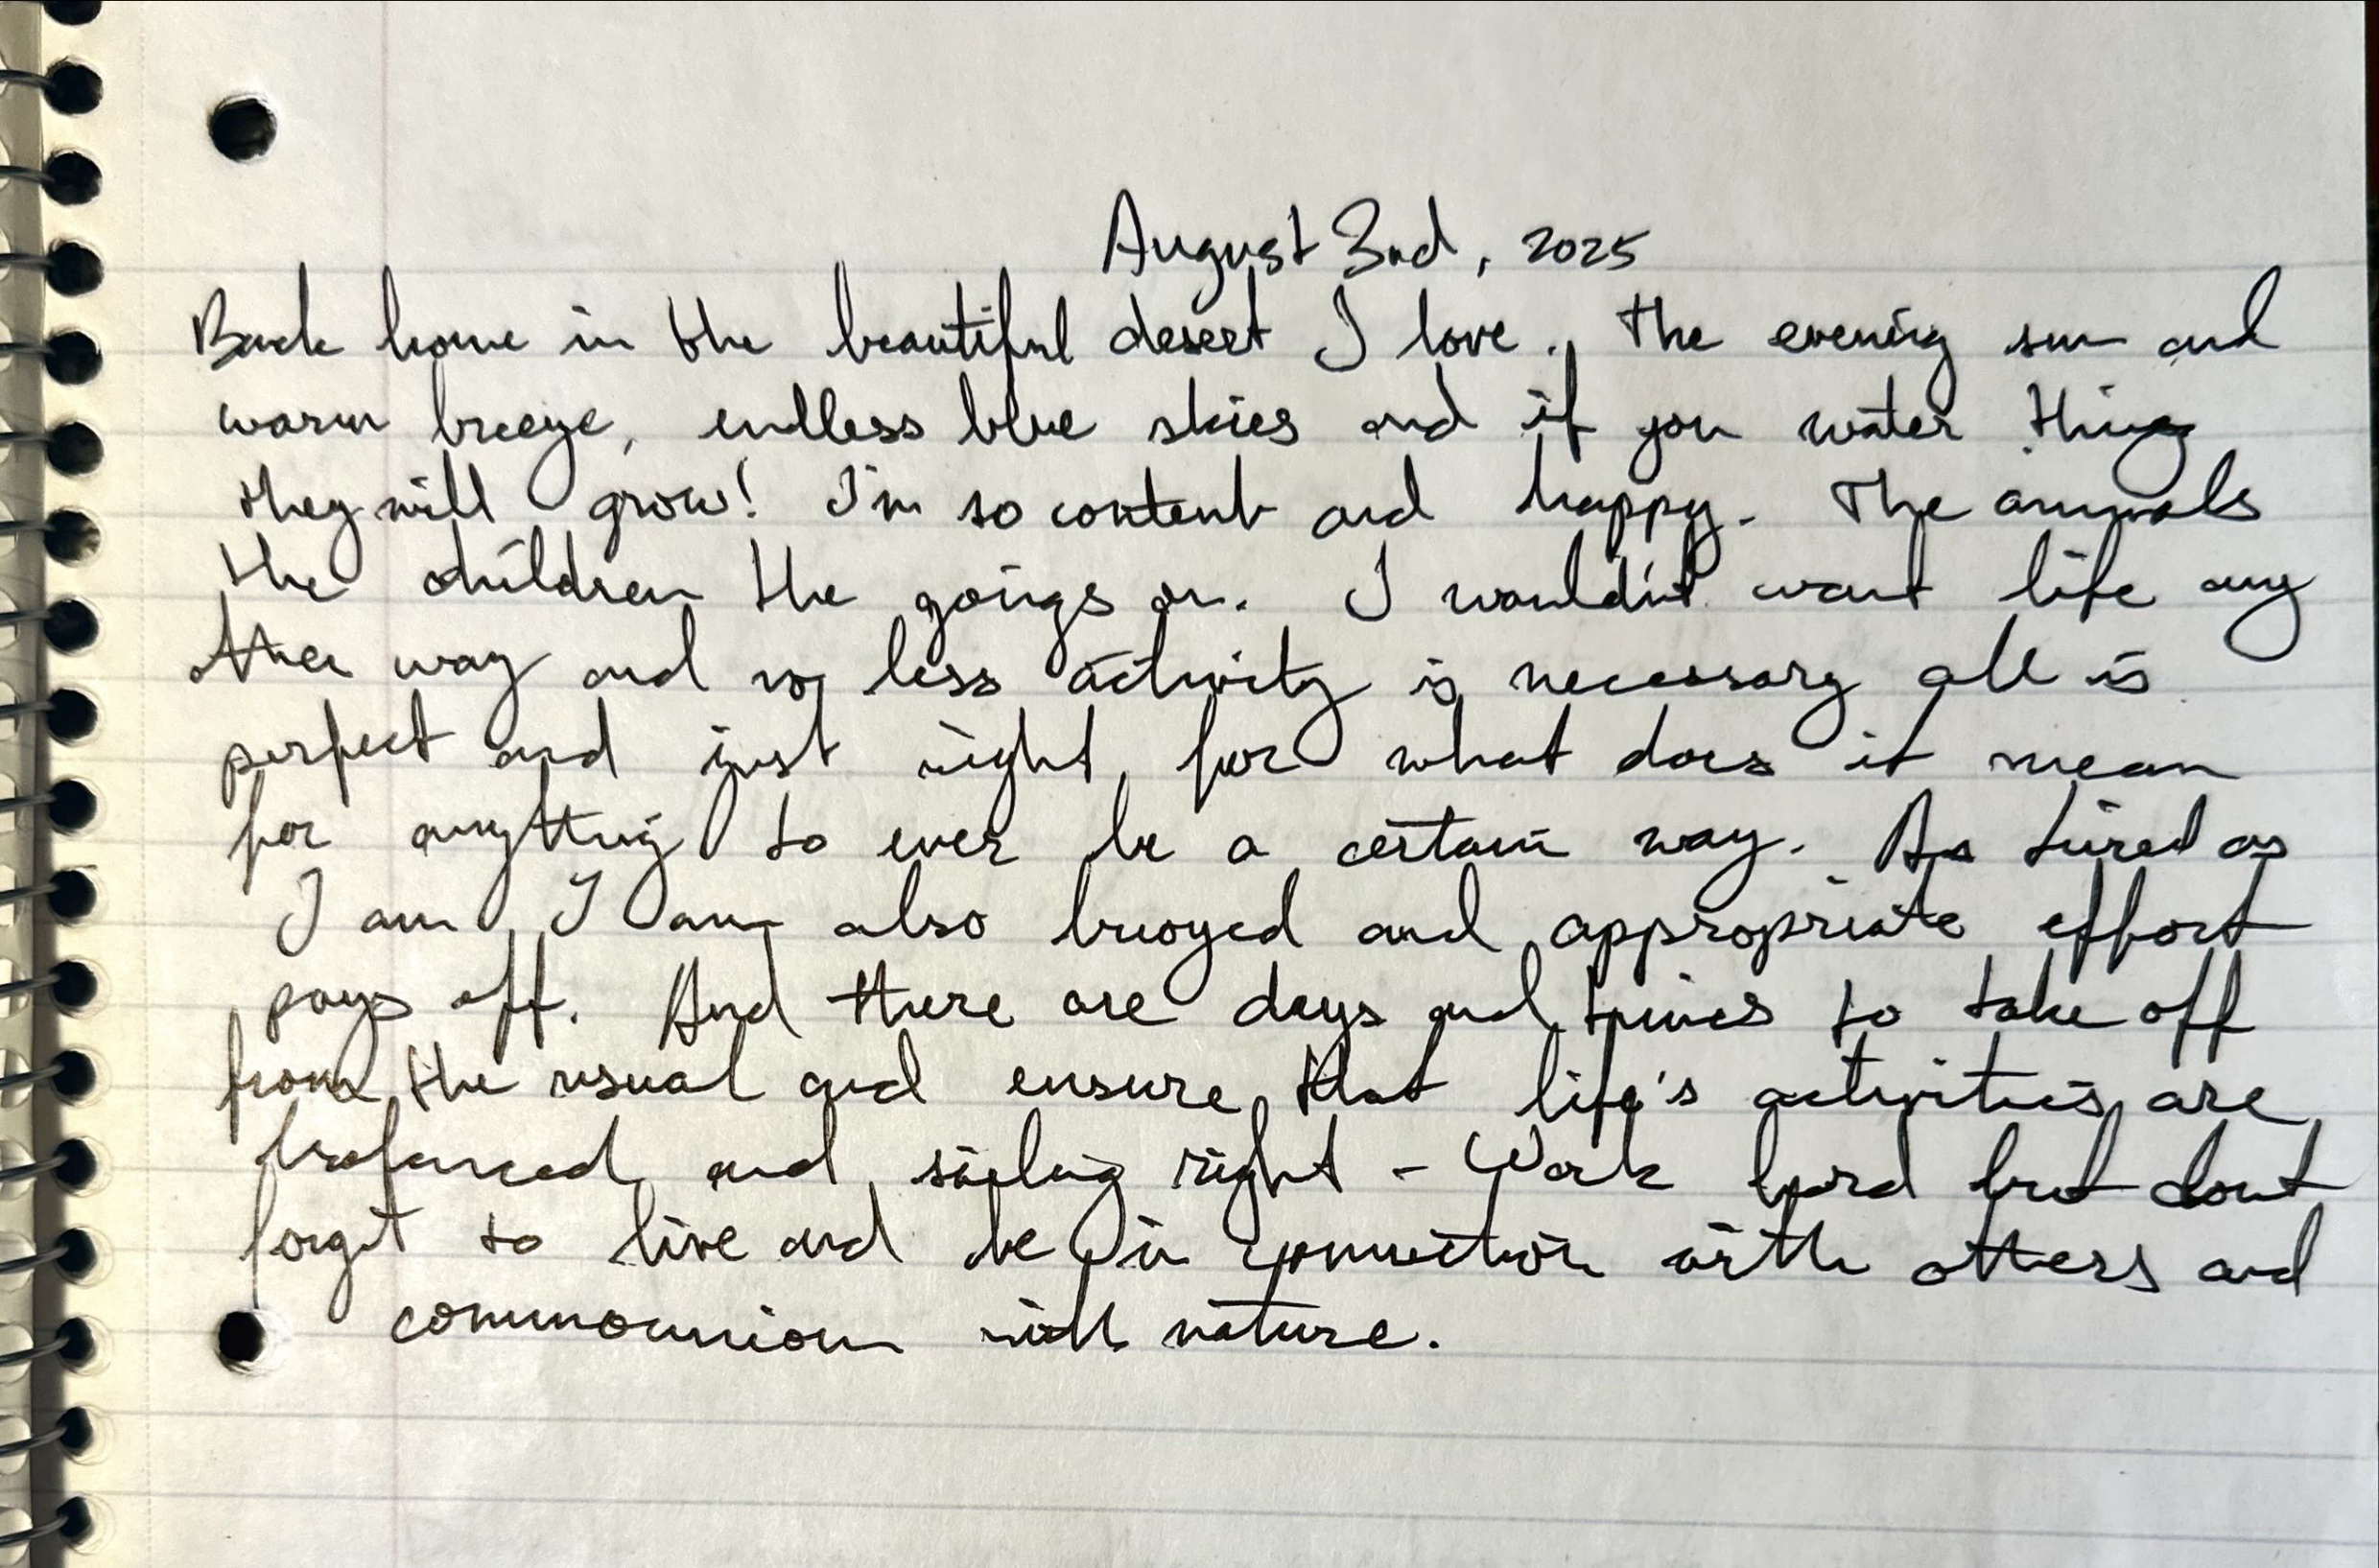 August 3nd, 2025
Back home in the beautiful desert I love. The evening sun and
warm breeze, endless blue skies and if you water things
they will grow! I'm so content and happy. The animals
the children the goings on. I wouldn't want life any
other way and no less activity is necessary all is
perfect and just right, for what does it mean
for anything to ever be a certain way. As tired as
I am, I am also buoyed and appropriate effort
pays off. And there are days and times to take off
from the usual and ensure that life's activities are
balanced and sailing right - Work hard but dont
forget to live and be in connection with others and
commounion with nature.